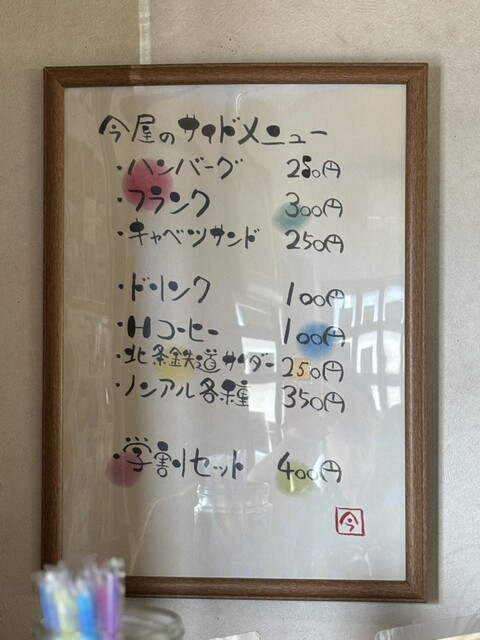 今屋のサイドメニュー
・ハンバーグ 250円
・フランク 300円
・キャベツサンド 250円
・ドリンク 100円
・Hコーヒー 100円
・北条鉄道サイダー 250円
・ノンアル各種 350円
・学割セット 400円
今